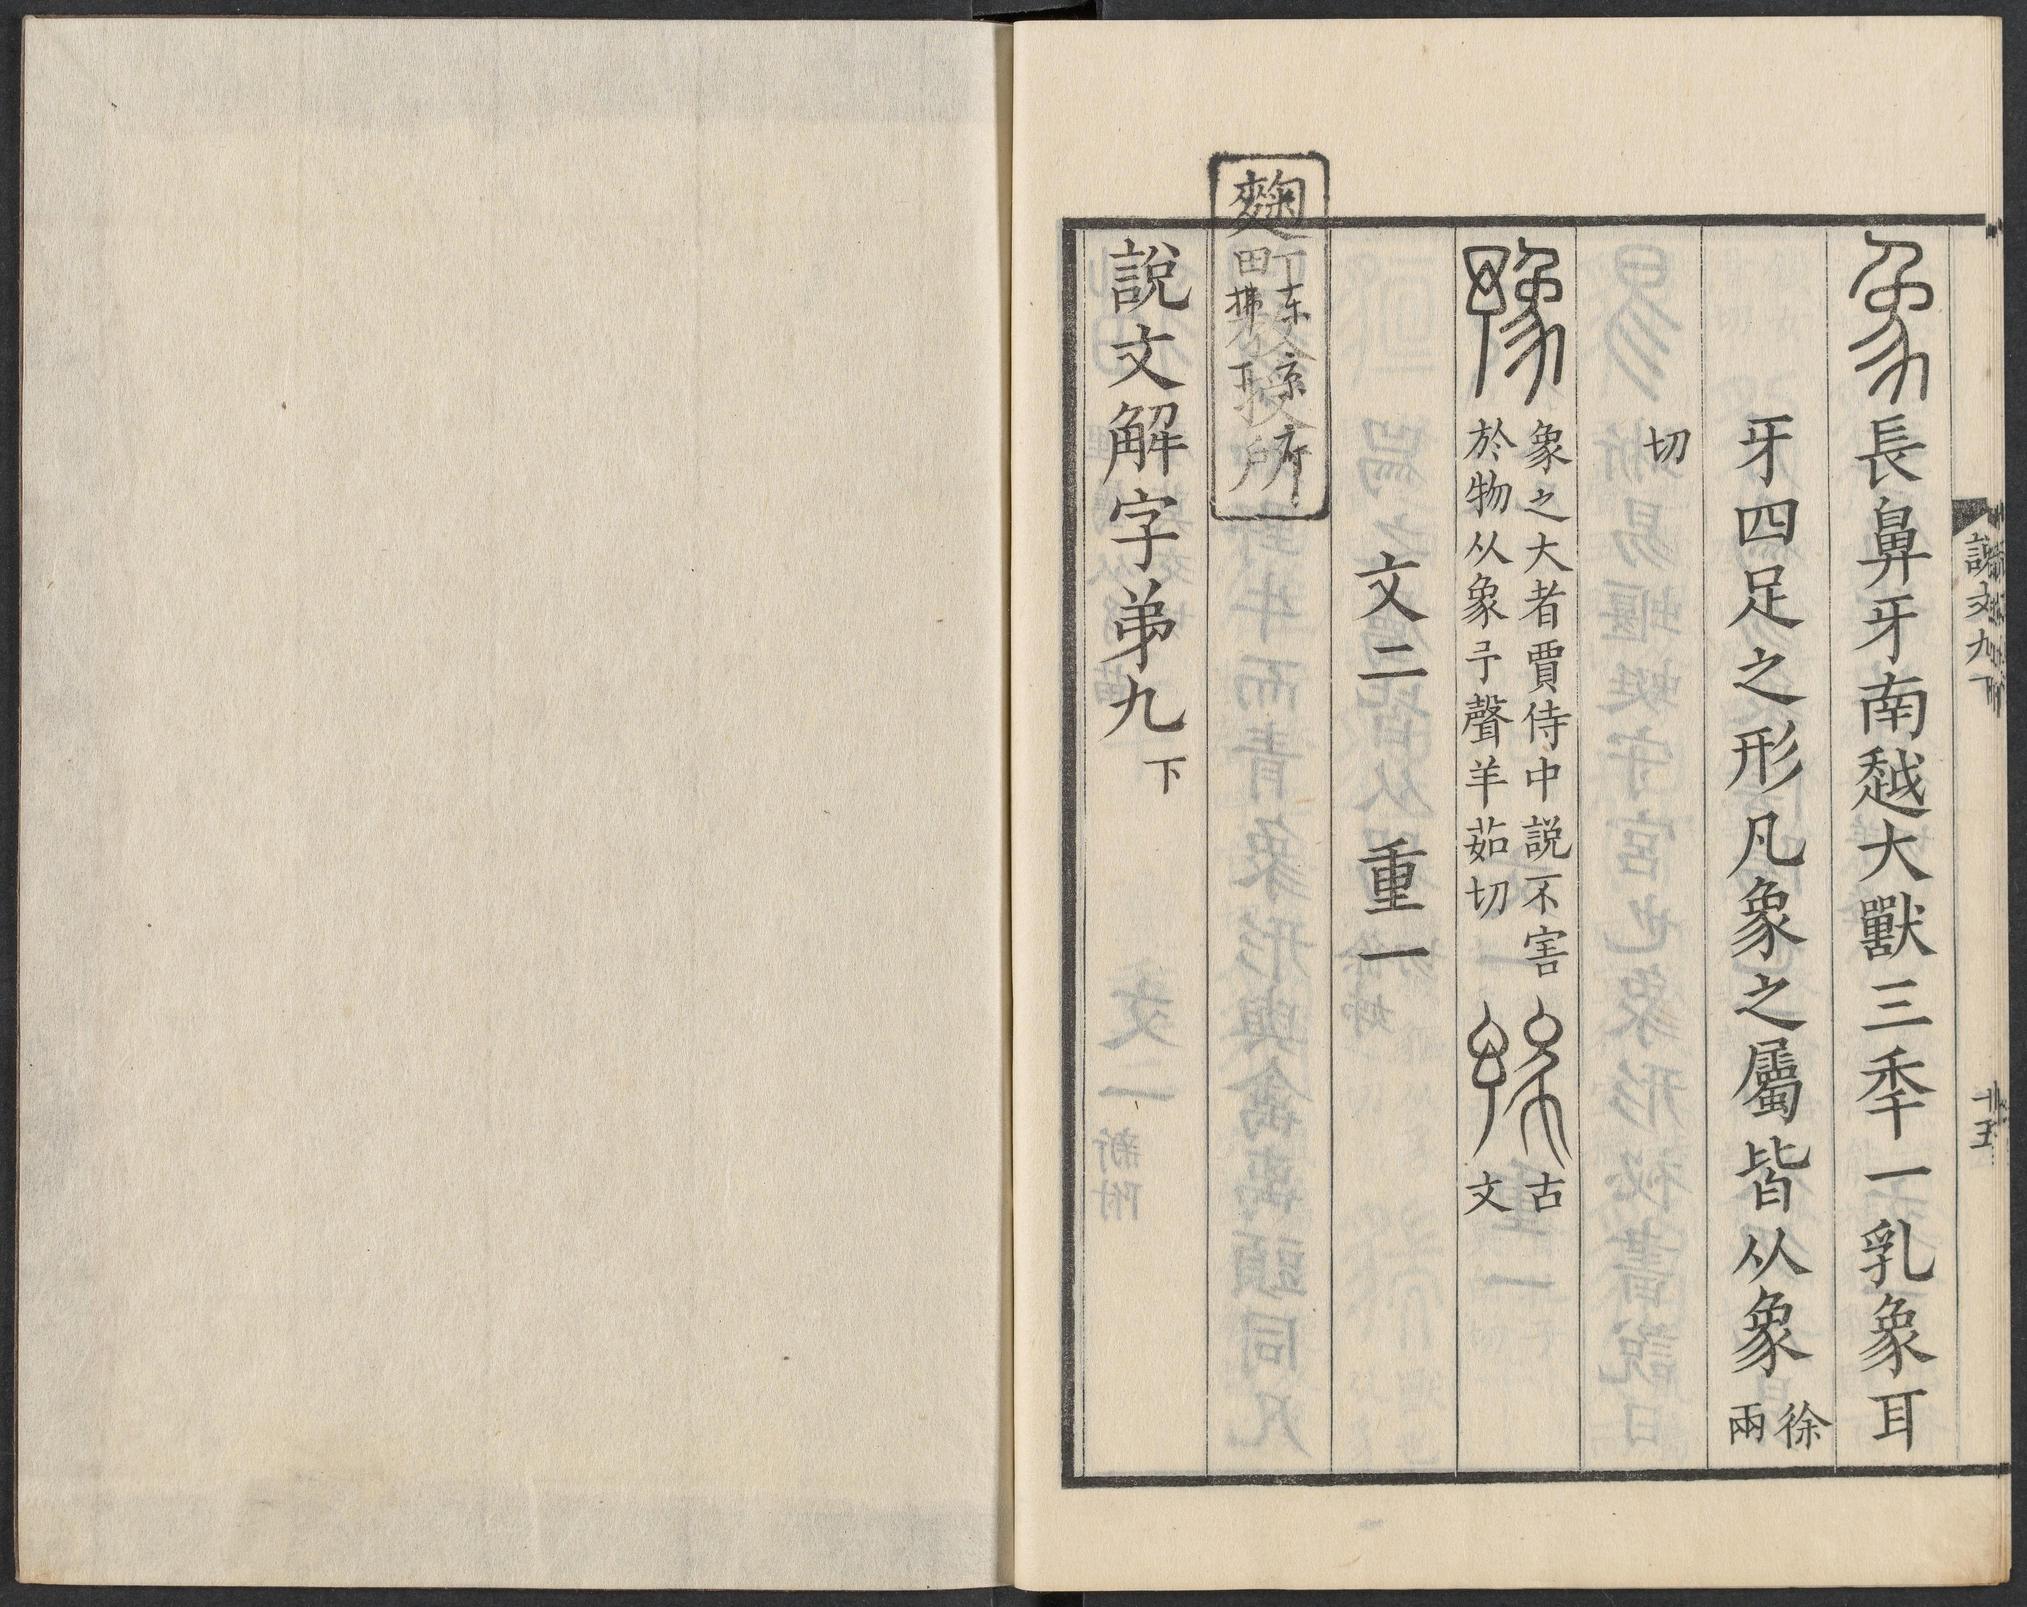 象長鼻牙南越大獸三秊一乳象耳
牙四足之形凡象之屬皆从象徐兩
切
豫象之大者賈侍中説不害
於物从象予聲羊茹切
古
文
文二 重一
説文解字弟九下
説文九下
十五